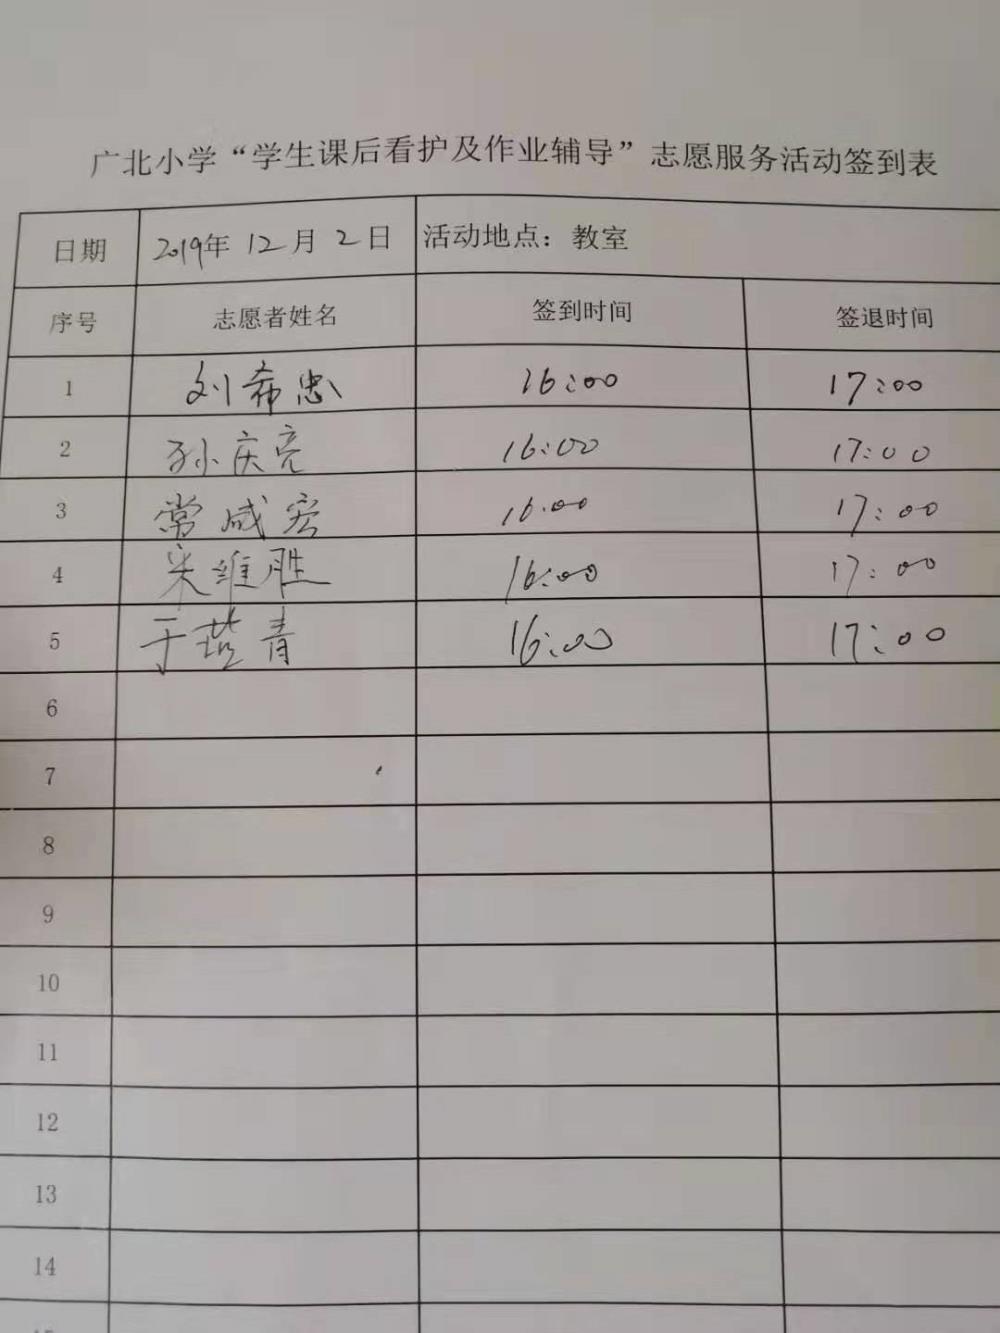 广北小学“学生课后看护及作业辅导”志愿服务活动签到表
日期 2019年 12月 2日 活动地点：教室
序号 志愿者姓名 签到时间 签退时间
1 刘希忠 16:00 17:00
2 孙庆亮 16:00 17:00
3 常咸宏 16:00 17:00
4 宋维胜 16:00 17:00
5 于 青 16:00 17:00
6
7
8
9
10
11
12
13
14